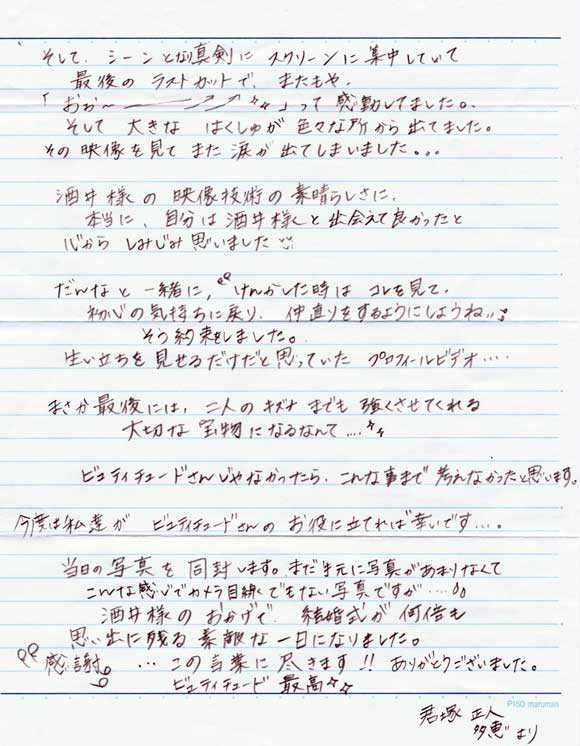 そして、シーンとなり真剣に スクリーンに集中していて
最後の ラストカットで、またもや、
「おぉ〜 」って 感動してました。
そして 大きな はくしゅが 色々な所から 出てました。
その映像を見て また 涙が 出てしまいました。。。
酒井様の 映像技術の 素晴らしさに、
本当に、自分は 酒井様と 出会えて 良かったと
心から しみじみ思いました
だんなと 一緒に、けんかした時は コレを見て、
初心の気持ちに戻り、仲直りをするようにしようね
そう約束をしました。
生い立ちを 見せるだけだと 思っていた プロフィールビデオ‥‥
まさか最後には、二人の キズナ までも 強くさせてくれる
大切な 宝物に なるなんて‥‥
ビュティチュードさんじゃなかったら、こんな事まで 考えなかったと思います。
今度は私達が ビュティチュードさんの お役に立てれば幸いです‥‥。
当日の 写真を 同封します。まだ手元に写真が あまりなくて
こんな感じで カメラ目線でもない 写真ですが‥‥
酒井様の おかげで、結婚式が 何倍も
思い出に残る 素敵な 一日になりました。
感謝。 … この言葉に 尽きます!! ありがとうございました。
ビュティチュード 最高
P150 maruman
君塚 正人
多恵 より